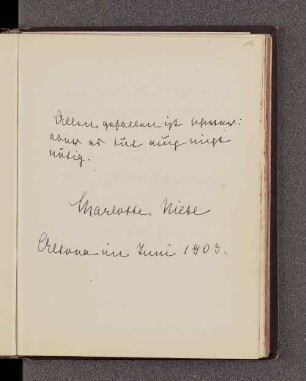 Allen gefallen ist schwer:
aber es tut auch nicht
nötig.
Charlotte Niese
Altona im Juni 1903.